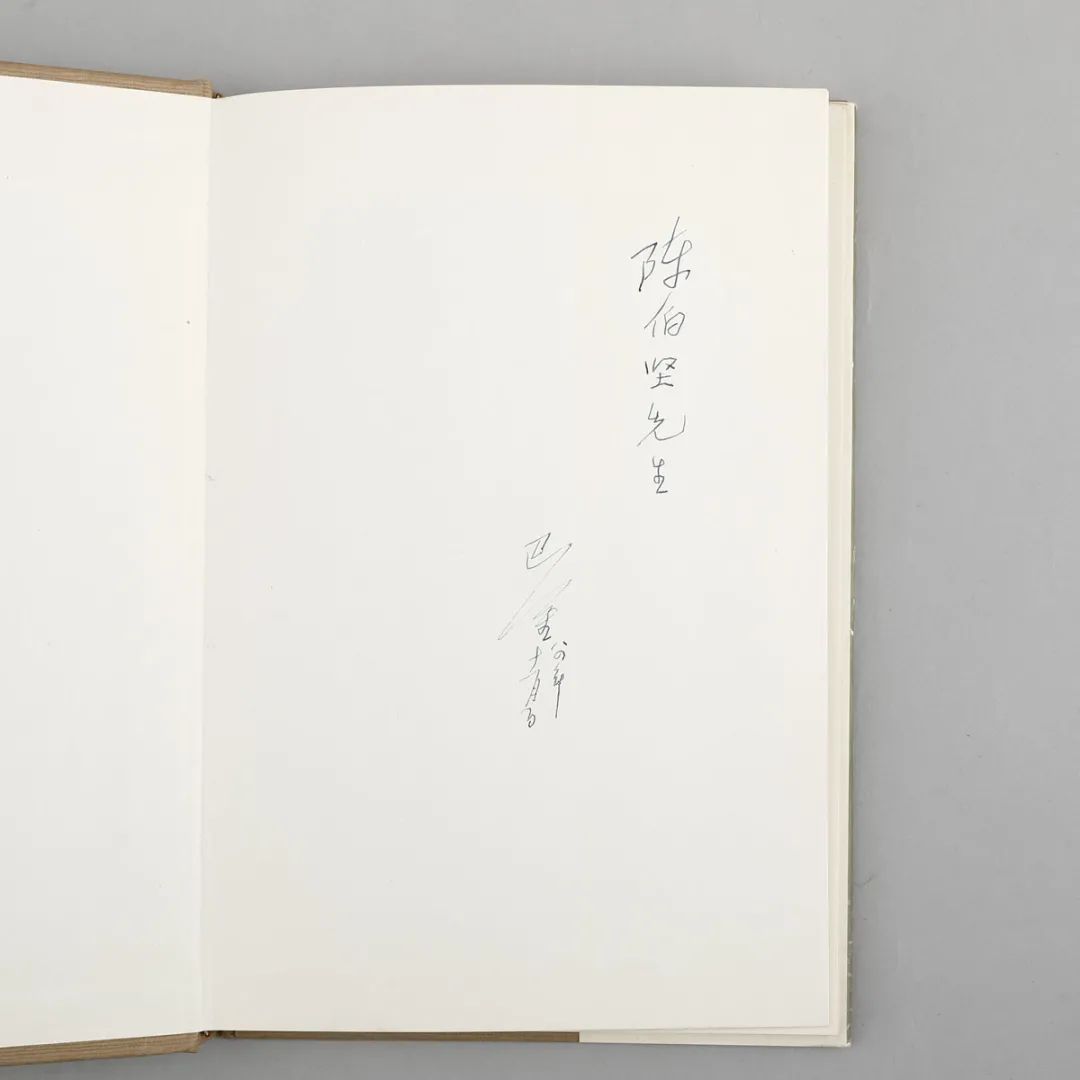 陈伯坚先生
巴金
八四年
十一月